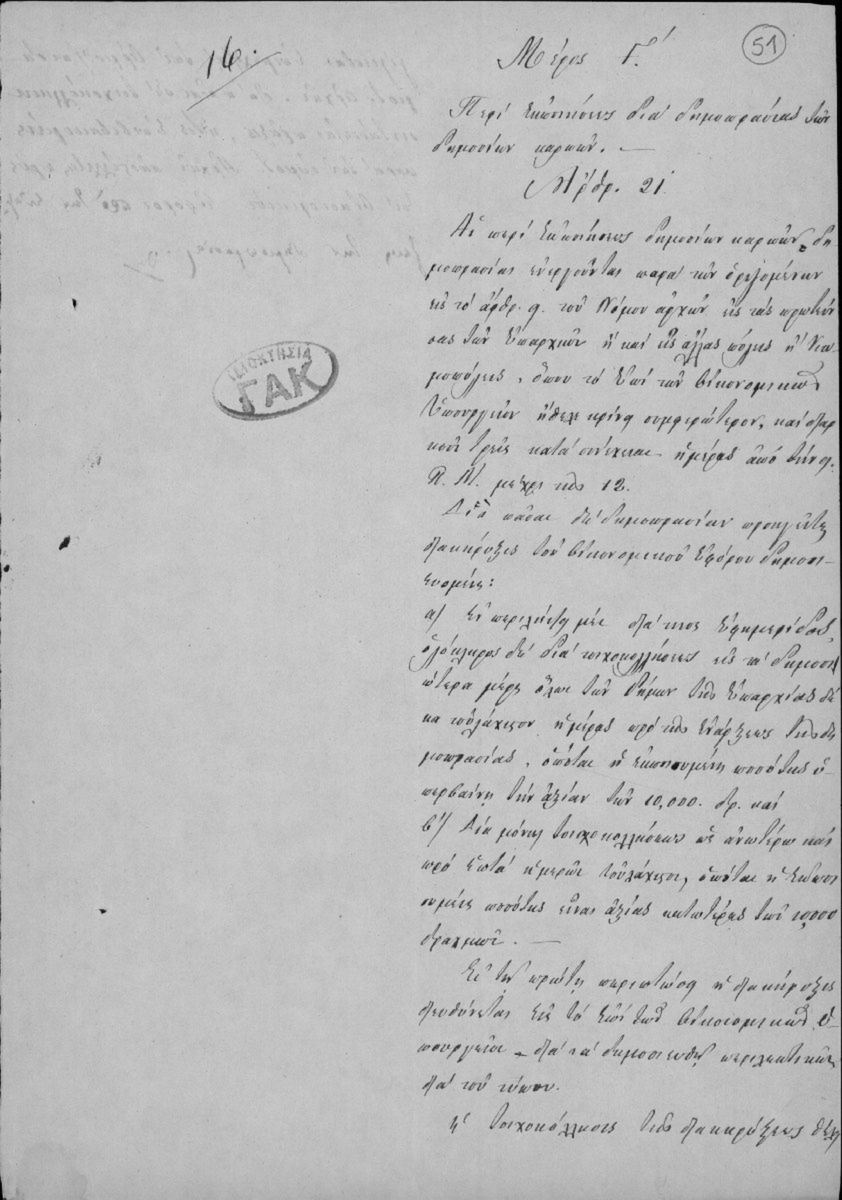 51
16.
Μέρος Γ΄.
Περί Εκποιήσεως διά δημοπρασίας των
δημοσίων καρπών. —
Άρθρ. 21
Αι περί Εκποιήσεως δημοσίων καρπών δη-
μοπρασίαι ενεργούνται παρά των οριζομένων
εις το άρθρ. 9. του Νόμου αρχών εις τας πρωτευού-
σας των Επαρχιών ή και εις άλλας πόλεις ή Κω-
μοπόλεις, όπου το Επί των Οικονομικών
Υπουργείον ήθελε κρίνη συμφερώτερον, και διαρ-
κούν τρεις κατά συνέχειαν ημέρας από την 9.
Π. Μ. μέχρι της 12.
πάσαν δε δημοπρασίαν προηγείται
διακήρυξις του Οικονομικού Εφόρου δημοσι-
ευομένη:
α) Εν περιλήψη μεν διά της Εφημερίδος,
ολόκληρος δε διά τοιχοκολλήσεως εις τα δημοσι
ώτερα μέρη όλων των Δήμων της Επαρχίας δέ
κα τουλάχιστον ημέρας προ της Ενάρξεως της δη
μοπρασίας, οπόταν η εκποιουμένη ποσότης ύ-
περβαίνη την αξίαν των 10,000. δρ. και
β) Διά μόνης τοιχοκολλήσεως ως ανωτέρω και
προ επτά ημερών τουλάχιστον, οπόταν η Εκποι
ουμένη ποσότης είναι αξίας κατωτέρας των 10,000
δραχμών. —
Εις την πρώτην περίπτωσιν η διακήρυξις
διευθύνεται εις το Επί των Οικονομικών Υ-
πουργείον διά να δημοσιευθή περιληπτικώς
διά του τύπου.
Η τοιχοκόλλησις της διακηρύξεως θέλει
ΙΔΙΟΚΤΗΣΙΑ
ΓΑΚ